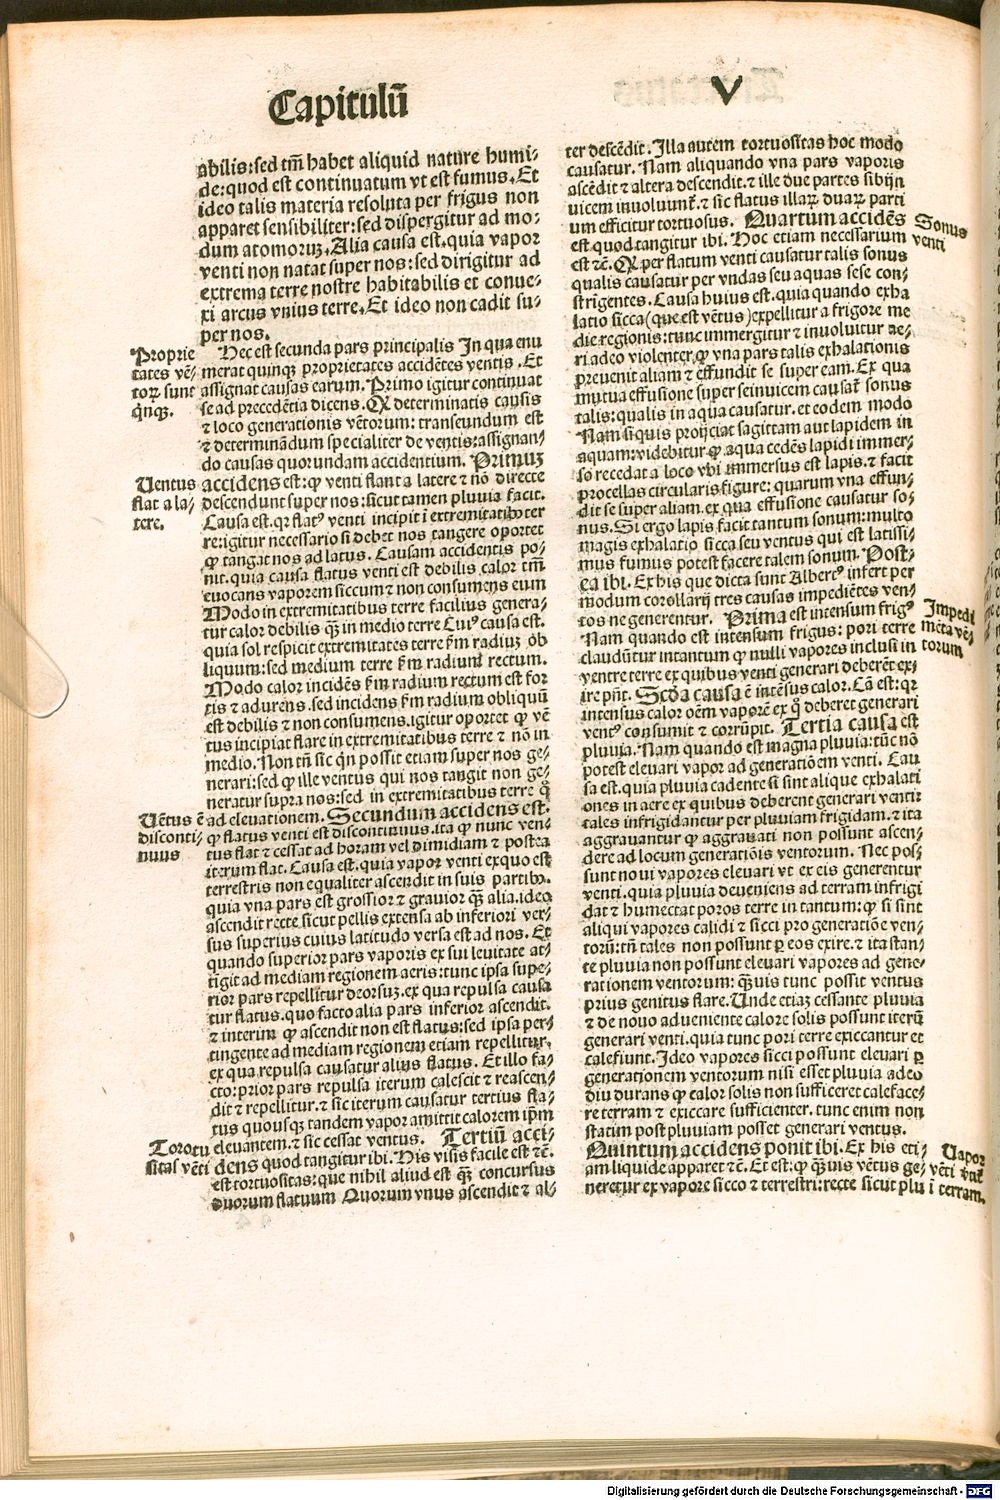 Capitulū V
abilis:sed tm̄ habet aliquid nature humi⸗
de:quod est continuatum vt est fumus. Et
ideo talis materia resoluta per frigus non
apparet sensibiliter:sed dispergitur ad mo⸗
dum atomoruꝫ. Alia causa est. quia vapor
venti non natat super nos:sed dirigitur ad
extrema terre nostre habitabilis et conue⸗
xi arcus vnius terre. Et ideo non cadit su⸗
per nos.
Proprie
tates vē⸗
toꝝ sunt
qͥnqꝫ.
Hec est secunda pars principalis In qua enu
merat quinqꝫ proprietates accidētes ventis. Et
assignat causas earum. Primo igitur continuat
se ad precedētia dicens. Qꝫ determinatis causis
⁊ loco generationis vētorum: transeundum est
⁊ determinādum specialiter de ventis:assignan⸗
do causas quorundam accidentium. Primuꝫ
Uentus
flat a la⸗
tere.
accidens est:ꝙ venti flant a latere ⁊ nō directe
descendunt super nos:sicut tamen pluuia facit.
Causa est. qꝛ flatꝰ venti incipit ī extremitatibꝰ ter
re:igitur necessario si debet nos tangere oportet
ꝙ tangat nos ad latus. Causam accidentis po⸗
nit. quia causa flatus venti est debilis calor tm̄
euocans vaporem siccum ⁊ non consumens eum
Modo in extremitatibus terre facilius genera⸗
tur calor debilis qꝫ̄ in medio terre Cuiꝰ causa est.
quia sol respicit extremitates terre ẜm radiuꝫ ob
liquum:sed medium terre ẜm radium rectum.
Modo calor incidēs ẜm radium rectum est for
tis ⁊ adurens. sed incidens ẜm radium obliquū
est debilis ⁊ non consumens. igitur oportet ꝙ vē
tus incipiat flare in extremitatibus terre ⁊ nō in
medio. Non tn̄ sic qͥn possit etiam super nos ge⸗
nerari:sed ꝙ ille ventus qui nos tangit non ge⸗
neratur supra nos:sed in extremitatibus terre qͦ
Uētus ē
disconti⸗
nuus
ad eleuationem. Secundum accidens est.
ꝙ flatus venti est discontinuus. ita ꝙ nunc ven⸗
tus flat ⁊ cessat ad horam vel dimidiam ⁊ postea
iterum flat. Causa est. quia vapor venti exquo est
terrestris non equaliter ascendit in suis partibꝰ.
quia vna pars est grossior ⁊ grauior qꝫ̄ alia. ideo
ascendit recte sicut pellis extensa ab inferiori ver⸗
sus superius cuius latitudo versa est ad nos. Et
quando superior pars vaporis ex sui leuitate at⸗
tīgit ad mediam regionem aeris:tunc ipsa supe⸗
rior pars repellitur deorsuꝫ. ex qua repulsa causa
tur flatus. quo facto alia pars inferior ascendit.
⁊ interim ꝙ ascendit non est flatus:sed ipsa per⸗
tingente ad mediam regionem etiam repellitur,
ex qua repulsa causatur alius flatus. Et illo fa⸗
cto:prior pars repulsa iterum calescit ⁊ reascen⸗
dit ⁊ repellitur. ⁊ sic iterum causatur tertius fla⸗
tus quousqꝫ tandem vapor amittit calorem ip̄m
Torotu
sitas vēti
eleuantem. ⁊ sic cessat ventus. Tertiū acci⸗
dens quod tangitur ibi. His visis facile est ⁊ē.
est tortuositas:que nihil aliud est qꝫ̄ concursus
duorum flatuum Quorum vnus ascendit ⁊ al⸗
ter descēdit. Illa autem tortuositas hoc modo
causatur. Nam aliquando vna pars vaporis
ascēdit ⁊ altera descendit. ⁊ ille due partes sibijn
uicem inuoluunt̄. ⁊ sic flatus illaꝝ duaꝝ parti
um efficitur tortuosus. Quartum accidēs
Sonus
venti
est quod tangitur ibi. Hoc etiam necessarium
est ⁊ē. Qꝫ per flatum venti causatur talis sonus
qualis causatur per vndas seu aquas sese con⸗
strigentes. Causa huius est. quia quando exha
latio sicca (que est vētus) expellitur a frigore me
die regionis: tunc immergitur ⁊ inuoluitur ae⸗
ri adeo violenter, ꝙ vna pars talis exhalationis
preuenit aliam ⁊ effundit se super eam. Ex qua
mutua effusione super seinuicem causat̄ sonus
talis: qualis in aqua causatur. et eodem modo
Nam si quis proijciat sagittam aut lapidem in
aquam:videbitur ꝙ aqua cedēs lapidi immer⸗
so recedat a loco vbi immersus est lapis. ⁊ facit
procellas circularis figure: quarum vna effun⸗
dit se super aliam. ex qua effusione causatur so⸗
nus. Si ergo lapis facit tantum sonum:multo
magis exhalatio sicca seu ventus qui est latissi⸗
mus fumus potest facere talem sonum. Post⸗
ea ibi. Ex his que dicta sunt Albertꝰ infert per
modum corollarij tres causas impediētes ven⸗
tos ne generentur. Prima est intensum frigꝰ
Impedi
mēta vē⸗
torum
Nam quando est intensum frigus: pori terre
claudūtur intantum ꝙ nulli vapores inclusi in
ventre terre ex quibus venti generari deberēt exi⸗
ire pn̄t. Scd̄a causa ē intēsus calor. Cā est: qꝛ
intensus calor oēm vaporē ex qͦ deberet generari
ventꝰ consumit ⁊ corrūpit. Tertia causa est
pluuia. Nam quando est magna pluuia: tūc nō
potest eleuari vapor ad generatiōem venti. Cau
sa est. quia pluuia cadente si sint alique exhalati
ones in aere ex quibus deberent generari venti:
tales infrigidantur per pluuiam frigidam. ⁊ ita
aggrauantur ꝙ aggrauati non possunt ascen⸗
dere ad locum generatiōis ventorum. Nec pos⸗
sunt noui vapores eleuari vt ex eis generentur
venti. quia pluuia deueniens ad terram infrigi
dat ⁊ humectat poros terre in tantum: ꝙ si sint
aliqui vapores calidi ⁊ sicci pro generatiōe ven⸗
torū: tn̄ tales non possunt ꝑ eos exire. ⁊ ita stan⸗
te pluuia non possunt eleuari vapores ad gene⸗
rationem ventorum: qꝫ̄uis tunc possit ventus
prius genitus flare. Unde etiaꝫ cessante pluuia
⁊ de nouo adueniente calore solis possunt iterū
generari venti. quia tunc pori terre exiccantur et
calefiunt. Ideo vapores sicci possunt eleuari ꝑ
generationem ventorum nisi esset pluuia adeo
diu durans ꝙ calor solis non sufficeret caleface⸗
re terram ⁊ exiccare sufficienter. tunc enim non
statim post pluuiam posset generari ventus.
Quintum accidens ponit ibi. Ex his eti⸗
Uapor
vēti ẜtit̄
ī terram.
am liquide apparet ⁊ē. Et est: ꝙ qꝫ̄uis vētus ge⸗
neretur ex vapore sicco ⁊ terrestri: recte sicut plu
Digitalisierung gefördert durch die Deutsche Forschungsgemeinschaft - DFG